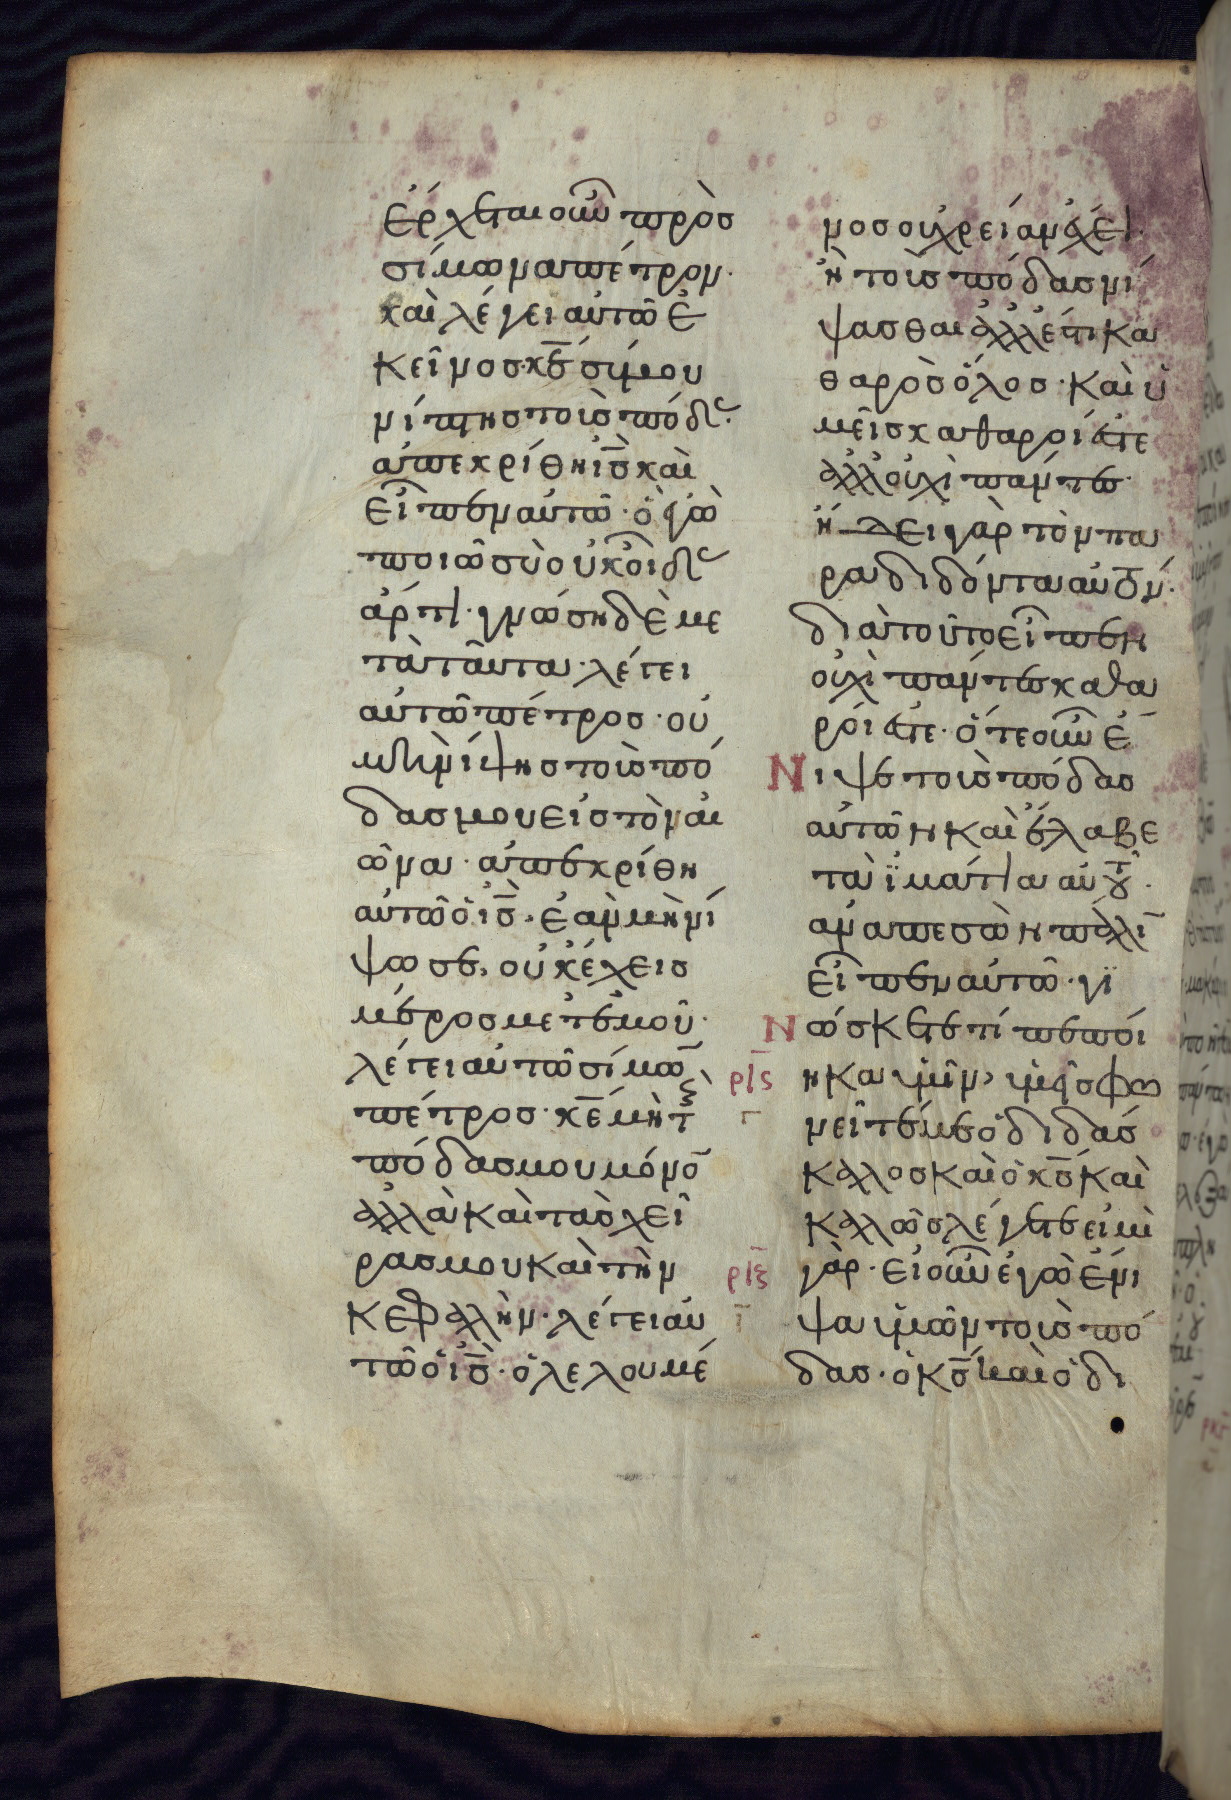 ἔρχεται οὖν πρὸσ
σίμωνα πέτρον·
καὶ λέγει αὐτῶ ἐ
κεῖνοσ· κε̅ σύ μου
νίπτησ τοὺσ πόδ(ασ)·
ἀπεκρίθη ισ̅ καὶ
εἶπεν αὐτῶ· ὃ ἐγὼ
ποιῶ σὺ οὐκ οἶδ(ασ)
ἄρτι· γνώση δὲ με
τὰ ταῦτα· λέγει
αὐτῶ πέτροσ· οὐ
μὴ νίψησ τοὺσ πό
δασ μου εἰσ τὸν αἰ
ῶνα· ἀπεκρίθη
αὐτῶ ὁ ισ̅· ἐὰν μὴ νί
ψω σε, οὐκ ἔχεισ
μέροσ μετ' ἐμοῦ·
λέγει αὐτῶ σίμω̅
πέτροσ· κε̅ μὴ τ(οὺσ)
πόδασ μου μόνο̅
ἀλλὰ καὶ τὰσ χεῖ
ρασ μου καὶ τὴν
κεφαλήν· λέγει αὐ
τῶ ὁ ισ̅· ὁ λελουμέ
νοσ οὐ χρείαν ἔχει·
ἢ τοὺσ πόδασ νί
ψασθαι ἀλλ' ἔστι κα
θαρὸσ ὅλοσ· καὶ ὑ
μεῖσ καθαροί ἐστε
ἀλλ' οὐχὶ πάντεσ·
ἤδει γὰρ τὸν πα
ραδιδόντα αὐτόν·
διὰ τοῦτο εἶπεν
οὐχὶ πάντεσ καθα
ροί ἐστε· ὅτε οὖν ἔ
Νιψε τοὺσ πόδασ
αὐτῶν καὶ ἔλαβε
τὰ ϊμάτια αὐτοῦ·
ἀναπεσὼν πάλι̅
εἶπεν αὐτῶ· γϊ
Νώσκετε τί πεποί
ρις ηκα ὑμῖν, ὑμεῖσ φω
γ νεῖτέ με ὁ διδάσ
καλοσ καὶ ὁ κσ̅ καὶ
καλῶσ λέγετε εἰμὶ
ριζ γάρ· εἰ οὖν ἐγὼ ἔνι
γ ψα ὑμῶν τοὺσ πό
δασ· ὁ κσ̅ καὶ ὁ δι